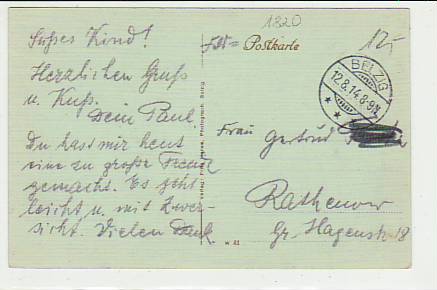 Süßes Kind!
Herzlichen Gruß
u. Kuß.
Dein Paul.
Du hast mir heut
eine zu große Freude
gemacht. Es geht
leicht u. mit Zuver-
sicht. Vielen Dank
1820
Feld=
Postkarte
12,-
BELZIG
12.8.14.8-9V.
Frau Gertrud
Rathenow
Gr. Hagenstr. 18
w 41